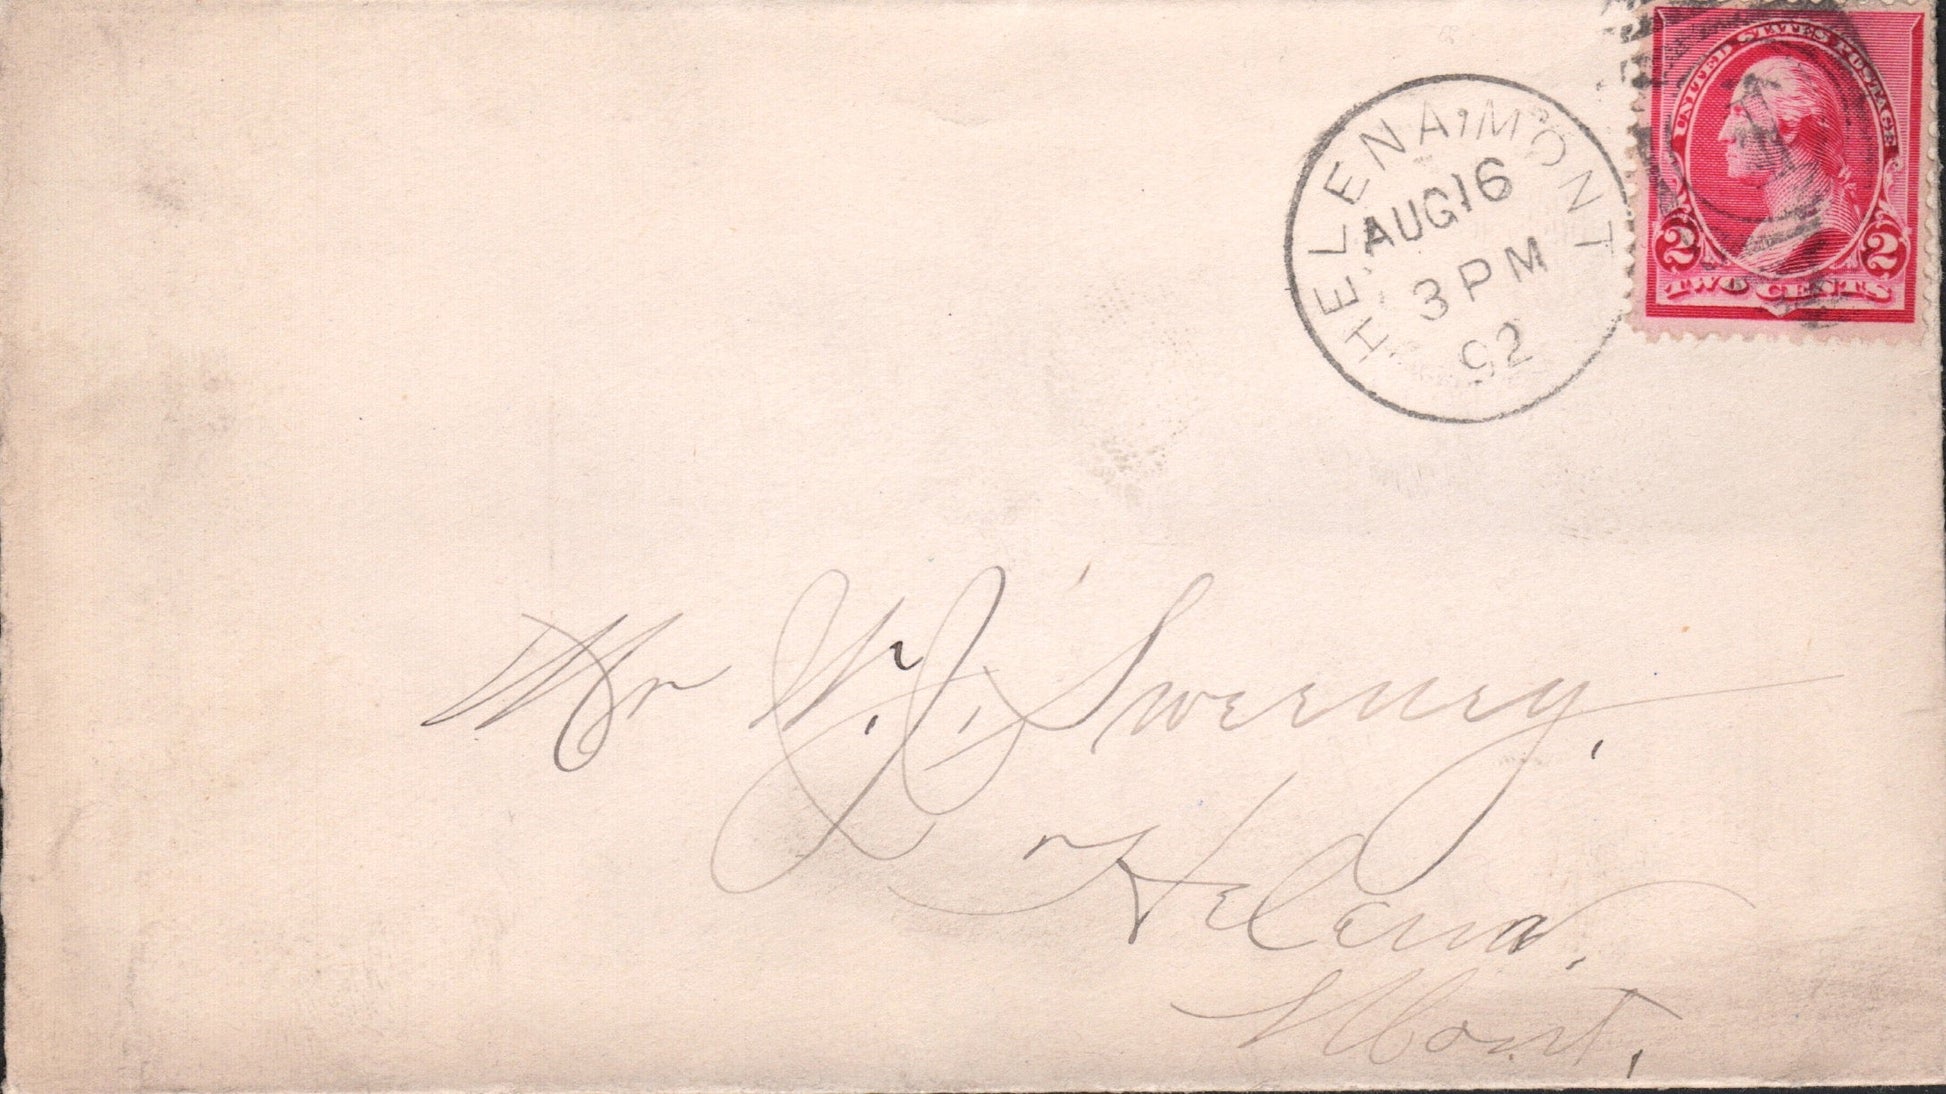 UNITED STATES POSTAGE
2 2
TWO CENTS
HELENA, MONT
AUG 16
3 PM
92
Mr W. J. Sweeney,
Helena,
Mont.